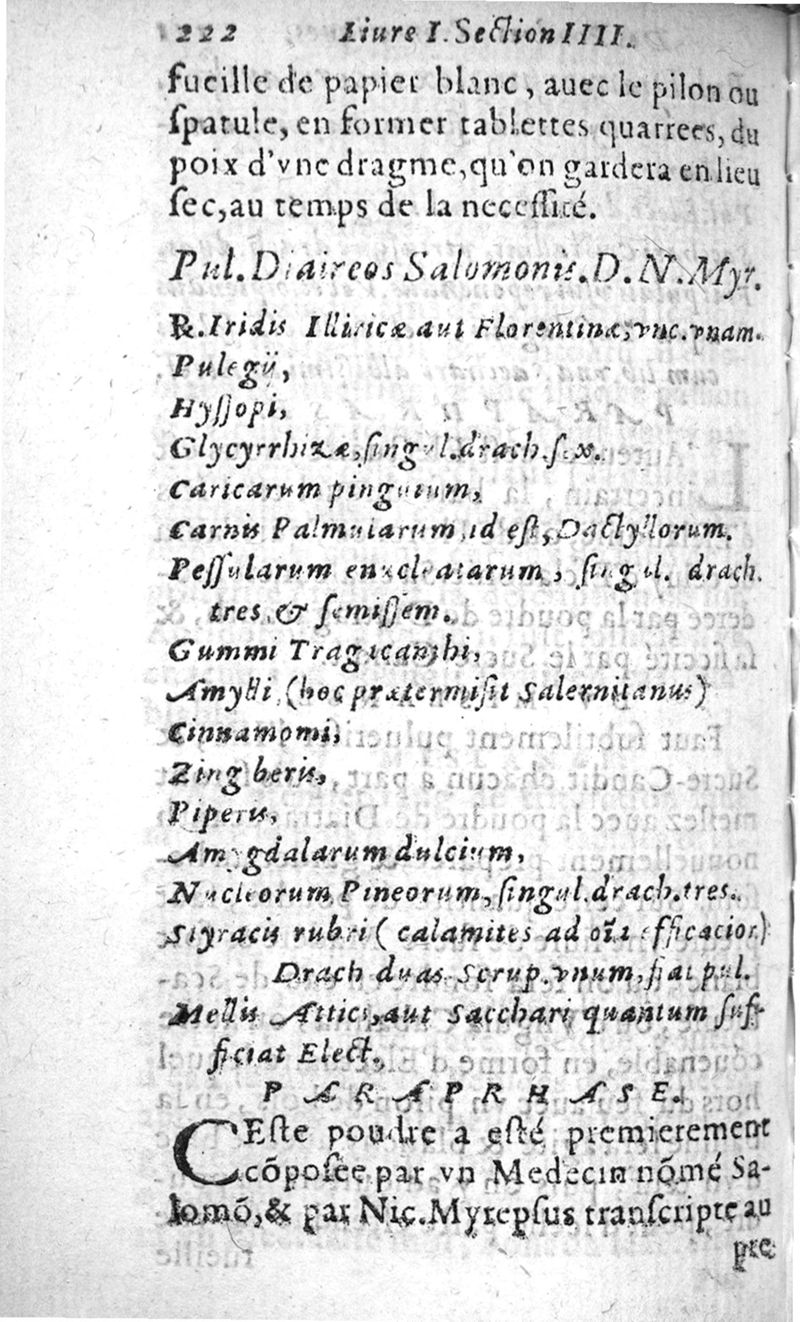 222 Liure I. Section IIII.
fueille de papier blanc, auec le pilon ou
ſpatule, en former tablettes quarrees, du
poix d'vne dragme, qu'on gardera en lieu
ſec, au temps de la neceſſité.
Pul. Diaireos Salomonis. D. N. Myr.
℞. Iridis Illiricæ aut Florentinæ, vnc. vnam.
Pulegij,
Hyſſopi,
Glycyrrhizæ, ſingul. drach. ſex.
Caricarum pinguium,
Carnis Palmularum, id eſt, Dactyllorum.
Peſſularum enucleatarum, ſingul. drach.
tres, & ſemiſſem.
Gummi Tragacanthi,
Amylli, (hoc prætermiſit Salernitanus)
Cinnamomi,
Zingiberis,
Piperis,
Amygdalarum dulcium,
Nucleorum Pineorum, ſingul. drach. tres.
Styracis rubri ( calamites ad oĩa efficacior)
Drach duas. Scrup. vnum, fiat pul.
Mellis Attici, aut Sacchari quantum ſuf-
ficiat Elect.
PARAPRHASE.
CEſte poudre a eſté premierement
cōpoſee par vn Medecin nōmé Sa-
lomō, & par Nic. Myrepſus tranſcripte au
pre